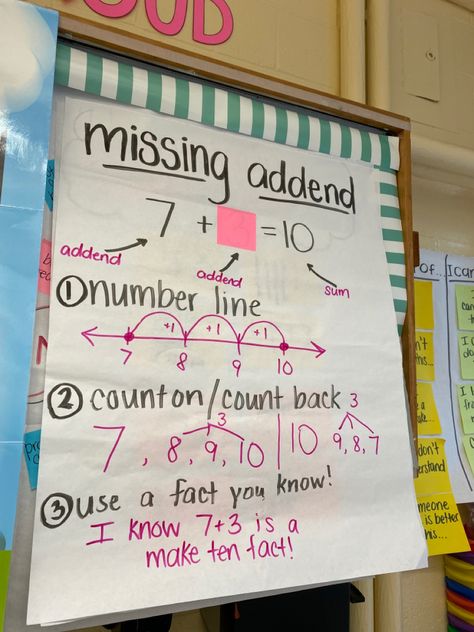 OUD
missing addend
7 + 3 = 10
addend
addend
sum
① number line
+1 +1 +1
7 8 9 10
② count on/count back
3 3
7, 8, 9, 10 | 10 9, 8, 7
③ use a fact you know!
I know 7+3 is a
make ten fact!
of... I can